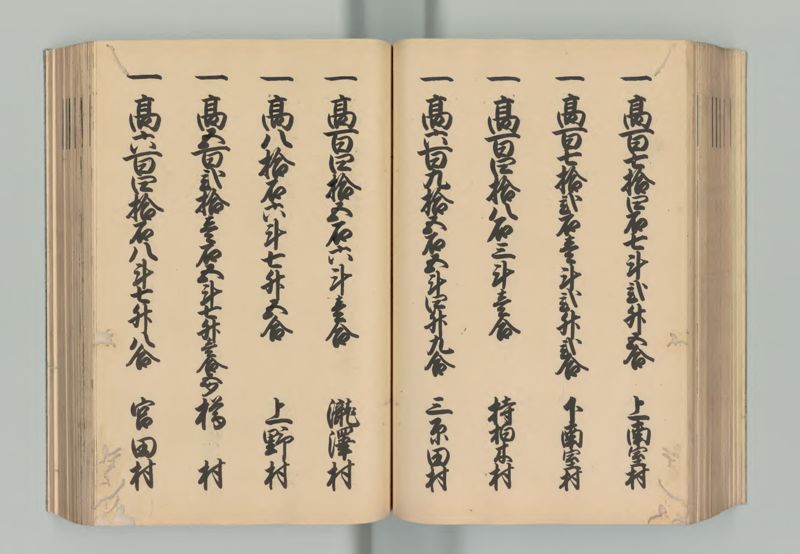 一高百七拾四石七斗弐升五合 上南室村
一高百七拾弐石壱斗弐升弐合 下南室村
一高百四拾八石三斗壱合 持柏木村
一高六百九拾五石五斗四升九合 三原田村
一高百四拾五石六斗壱合 瀧澤村
一高八拾石六斗七升五合 上野村
一高五百弐拾壱石五斗七升壱合夕 樽村
一高六百四拾石八斗七升八合 宮田村